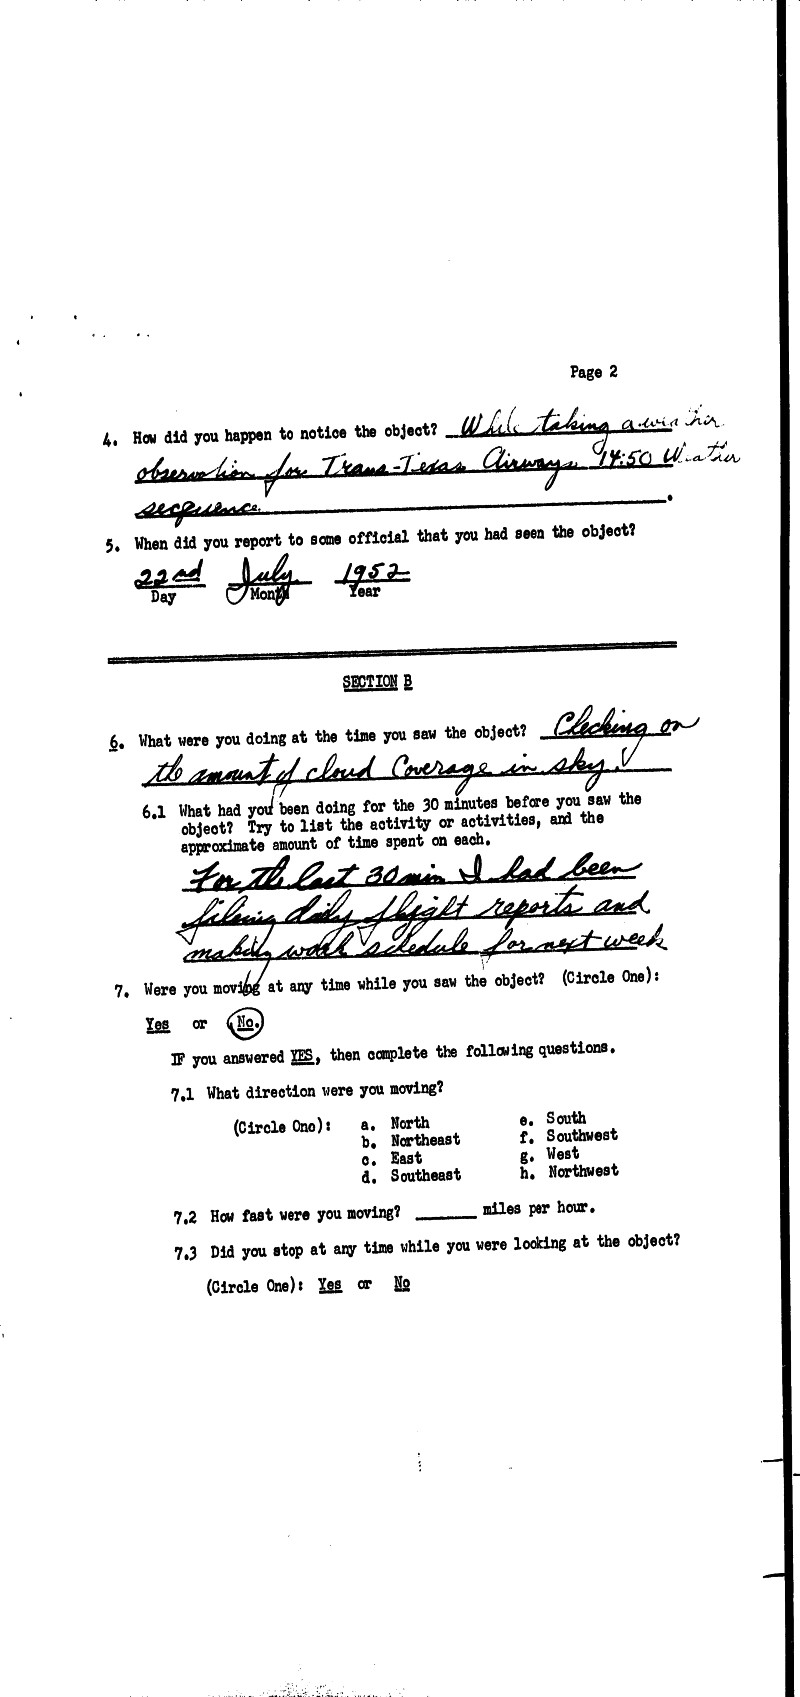 Page 2
4. How did you happen to notice the object? While taking a weather
observation for Trans-Texas Airways 14:50 Weather
sequence.
5. When did you report to some official that you had seen the object?
22nd July 1952
Day Month Year
SECTION B
6. What were you doing at the time you saw the object? Checking on
the amount of cloud Coverage in sky.
6.1 What had you been doing for the 30 minutes before you saw the
object? Try to list the activity or activities, and the
approximate amount of time spent on each.
For the last 30 min I had been
fileing daily flyight reports and
making work schedule for next week
7. Were you moving at any time while you saw the object? (Circle One):
Yes or No.
IF you answered YES, then complete the following questions.
7.1 What direction were you moving?
(Circle One): a. North e. South
b. Northeast f. Southwest
c. East g. West
d. Southeast h. Northwest
7.2 How fast were you moving? ______ miles per hour.
7.3 Did you stop at any time while you were looking at the object?
(Circle One): Yes or No